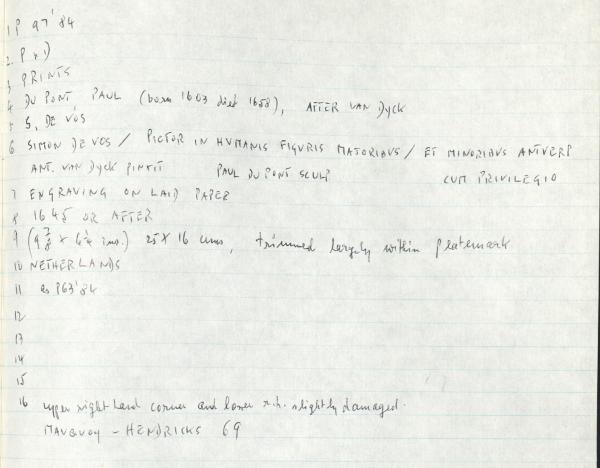 1 P 97'84
2. P
3 PRINTS
4 DU PONT, PAUL (born 1603 died 1658), AFTER VAN DyCK
5 S. DE VOS
6 SIMON DE VOS / PICTOR IN HVMANIS FIGVRIS MAIORIBVS / ET MINORIBVS ANTVERP
ANT. VAN DyCK PINXIT PAUL DU PONT SCULP CUM PRIVILEGIO
7 ENGRAVING ON LAID PAPER
8 1645 OR AFTER
9 (9 7/8 x 6 1/4 ins.) 25 X 16 cms, trimmed largely within platemark
10 NETHERLANDS
11 as P63'84
12
13
14
15
16 upper right hand corner and lower r.h. slightly damaged.
MAUQUOY - HENDRICKS 69